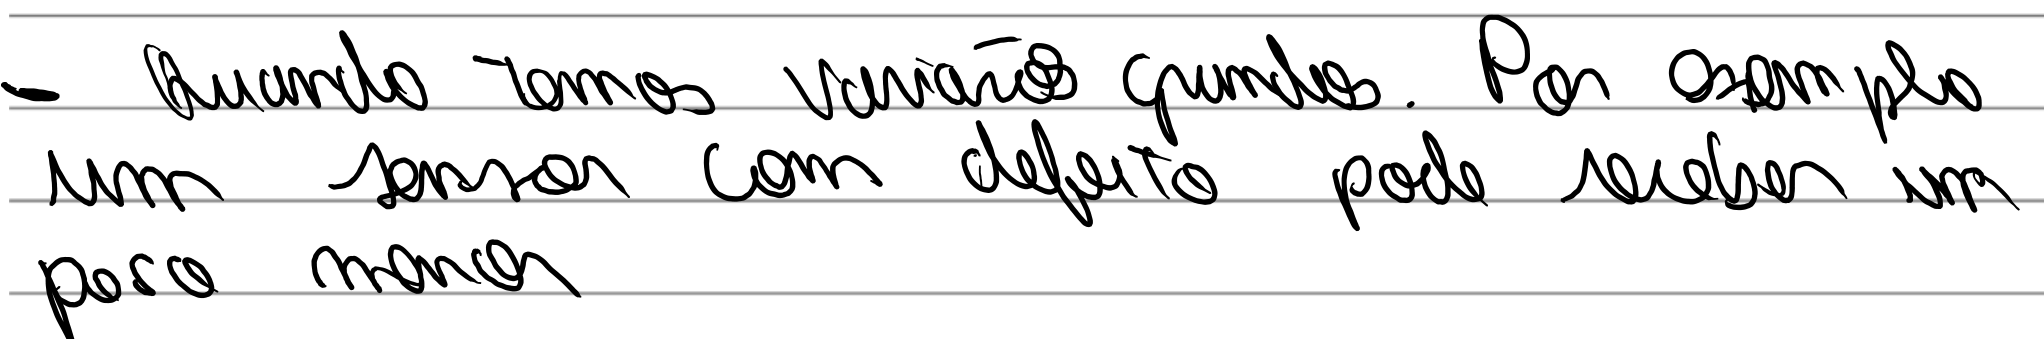 - Quando temos variações grandes. Por exemplo
um sensor com defeito pode receber um
peso menor